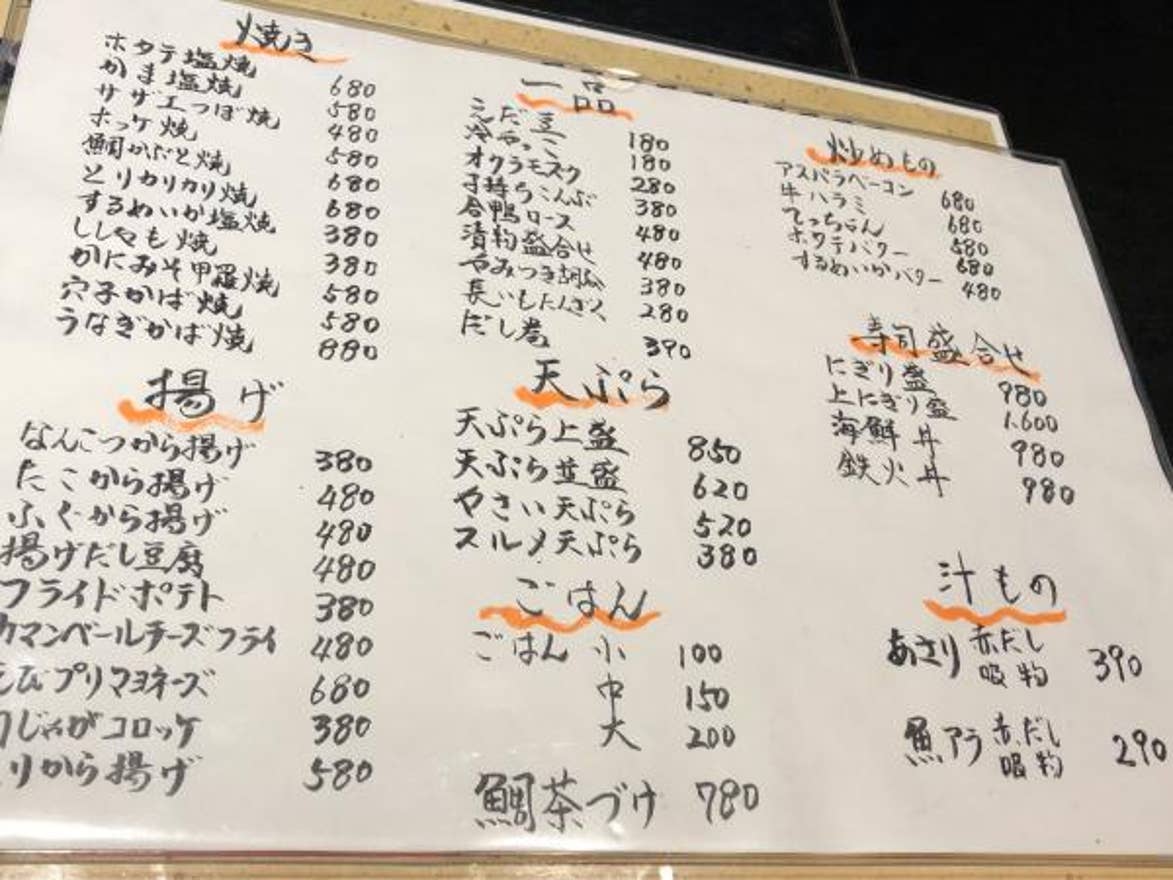 焼き
ホタテ塩焼 680
かま塩焼 580
サザエつぼ焼 480
ホッケ焼 580
鯛かぶと焼 680
とりカリカリ焼 680
するめいか塩焼 380
ししゃも焼 380
かにみそ甲羅焼 580
穴子かば焼 580
うなぎかば焼 880
揚げ
なんこつから揚げ 380
たこから揚げ 480
ふぐから揚げ 480
揚げだし豆腐 480
フライドポテト 380
カマンベールチーズフライ 480
えびプリマヨネーズ 680
じゃがコロッケ 380
りから揚げ 580
一品
えだ豆 180
冷やっこ 180
オクラモズク 280
子持ちこんぶ 380
合鴨ロース 480
漬物盛合せ 480
やみつき胡瓜 380
長いもたんざく 280
だし巻 390
天ぷら
天ぷら上盛 850
天ぷら並盛 620
やさい天ぷら 520
スルメ天ぷら 380
ごはん
ごはん 小 100
中 150
大 200
鯛茶づけ 780
炒めもの
アスパラベーコン 680
牛ハラミ 680
てっちゃん 580
ホタテバター 680
するめいかバター 480
寿司盛合せ
にぎり盛 980
上にぎり盛 1.600
海鮮丼 980
鉄火丼 980
汁もの
あさり 赤だし 390
吸物
魚アラ 赤だし 290
吸物